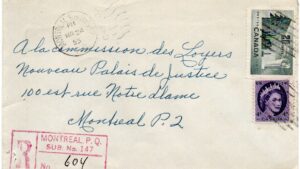 PM
55
CANADA
A la Commission des Loyers
Nouveau Palais de Justice
100 est rue Notre Dame
Montreal P.2
MONTREAL P.Q.
SUB. No. 147
R
No. 604